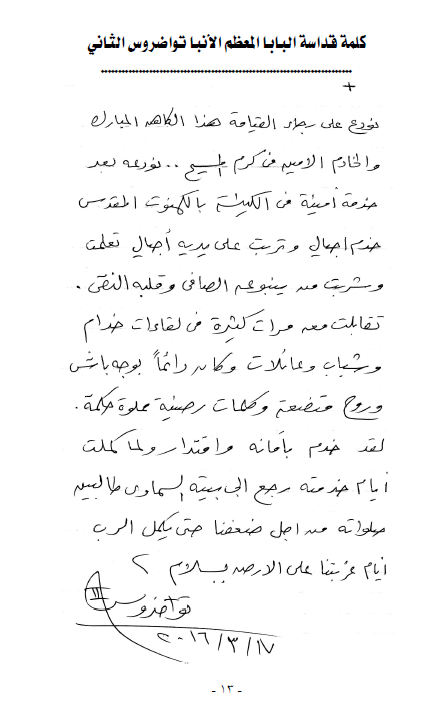 كلمة قداسة البابا المعظم الأنبا تواضروس الثاني
+
نودع على رجاء القيامة هذا الكاهن المبارك
والخادم الامين فى كرم المسيح .. نودعه بعد
خدمة أمينة فى الكنيسة بالكهنوت المقدس
خدم اجيال وتربت على يديه أجيال تعلمت
وشربت من ينبوعه الصافى وقلبه النقى .
تقابلت معه مرات كثيرة فى لقاءات خدام
وشباب وعائلات وكان دائماً بوجه باش
وروح متضعة وكلمات رصينة مملوة حكمة .
لقد خدم بأمانه واقتدار ولما كملت
أيام خدمته رجع الى بيته السماوى طالبين
صلواته من اجل ضعفنا حتى يكمل الرب
أيام غربتنا على الارض بسلام
تواضروس II
٢٠١٦/٣/١٧
- ١٣ -